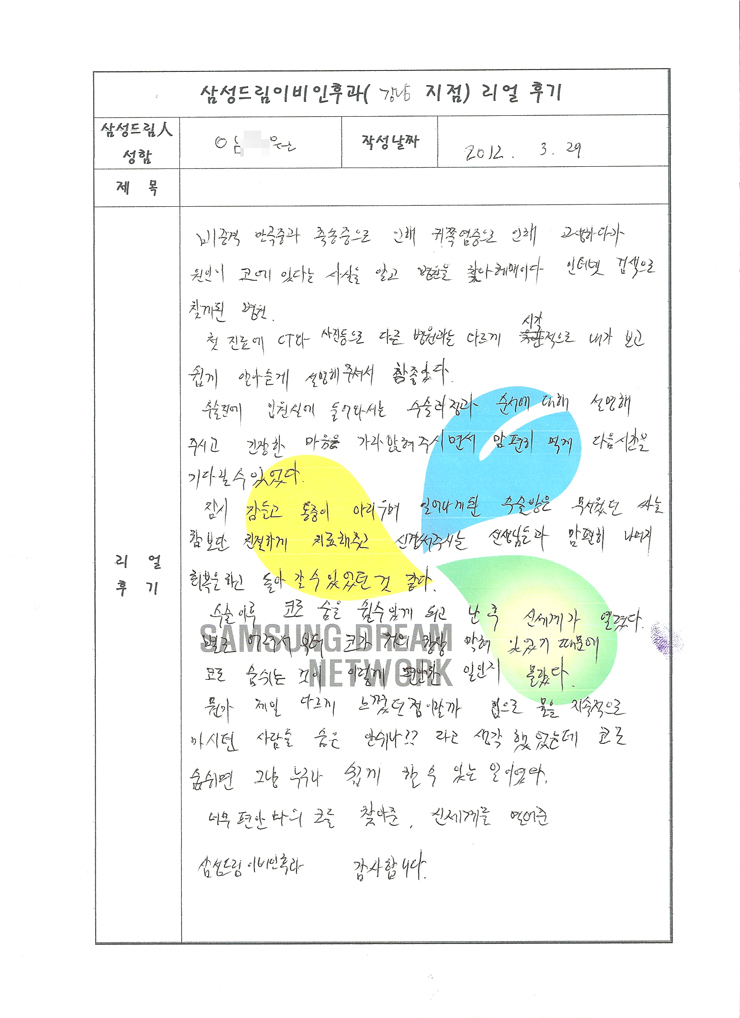 삼성드림이비인후과( 강남 지점) 리얼 후기
삼성드림人 성함
작성날짜
2012. 3. 29
제 목
리 얼 후 기
비중격 만곡증과 축농증으로 인해 귀쪽염증으로 인해 고생하다가
원인이 코에 있다는 사실을 알고 병원을 찾아헤매이다 인터넷 검색으로
찾게된 병원.
첫 진료에 CT와 사진등으로 다른 병원과는 다르게 시각적으로 내가 보고
쉽게 알아듣게 설명해주셔서 참좋았다.
수술전에 입원실에 들어와서는 수술과정과 순서에 대해 설명해
주시고 긴장한 마음을 가라앉혀주시면서 맘편히 먹게 다음시간을
기다릴수있었다.
잠시 잠들고 통증이 아리우며 일어나게된 수술방은 무서웠던
친절하게 치료해주고 신경써주시는 선생님들과 맘편히 나머지
회복을하고 돌아 갈수있었던것 같다.
수술이후 코로 숨을 쉴수있게 되고 난 후 신세계가 열렸다.
어려서부터 코가 거의 항상 막혀 있었기 때문에
코로 숨쉬는 것이 이렇게 편안한 일인지 몰랐다.
뭔가 제일 다르게 느꼈던점이랄까 입으로 물을 지속적으로
마시면 사람들 숨은 안쉬나?? 라고 생각 했었는데 코로
숨쉬면 그냥 누구나 쉽게 할수 있는 일이었다.
너무 편안 나의 코를 찾아준, 신세계를 열어준
삼성드림이비인후과 감사합니다.
SAMSUNG DREAM
NETWORK